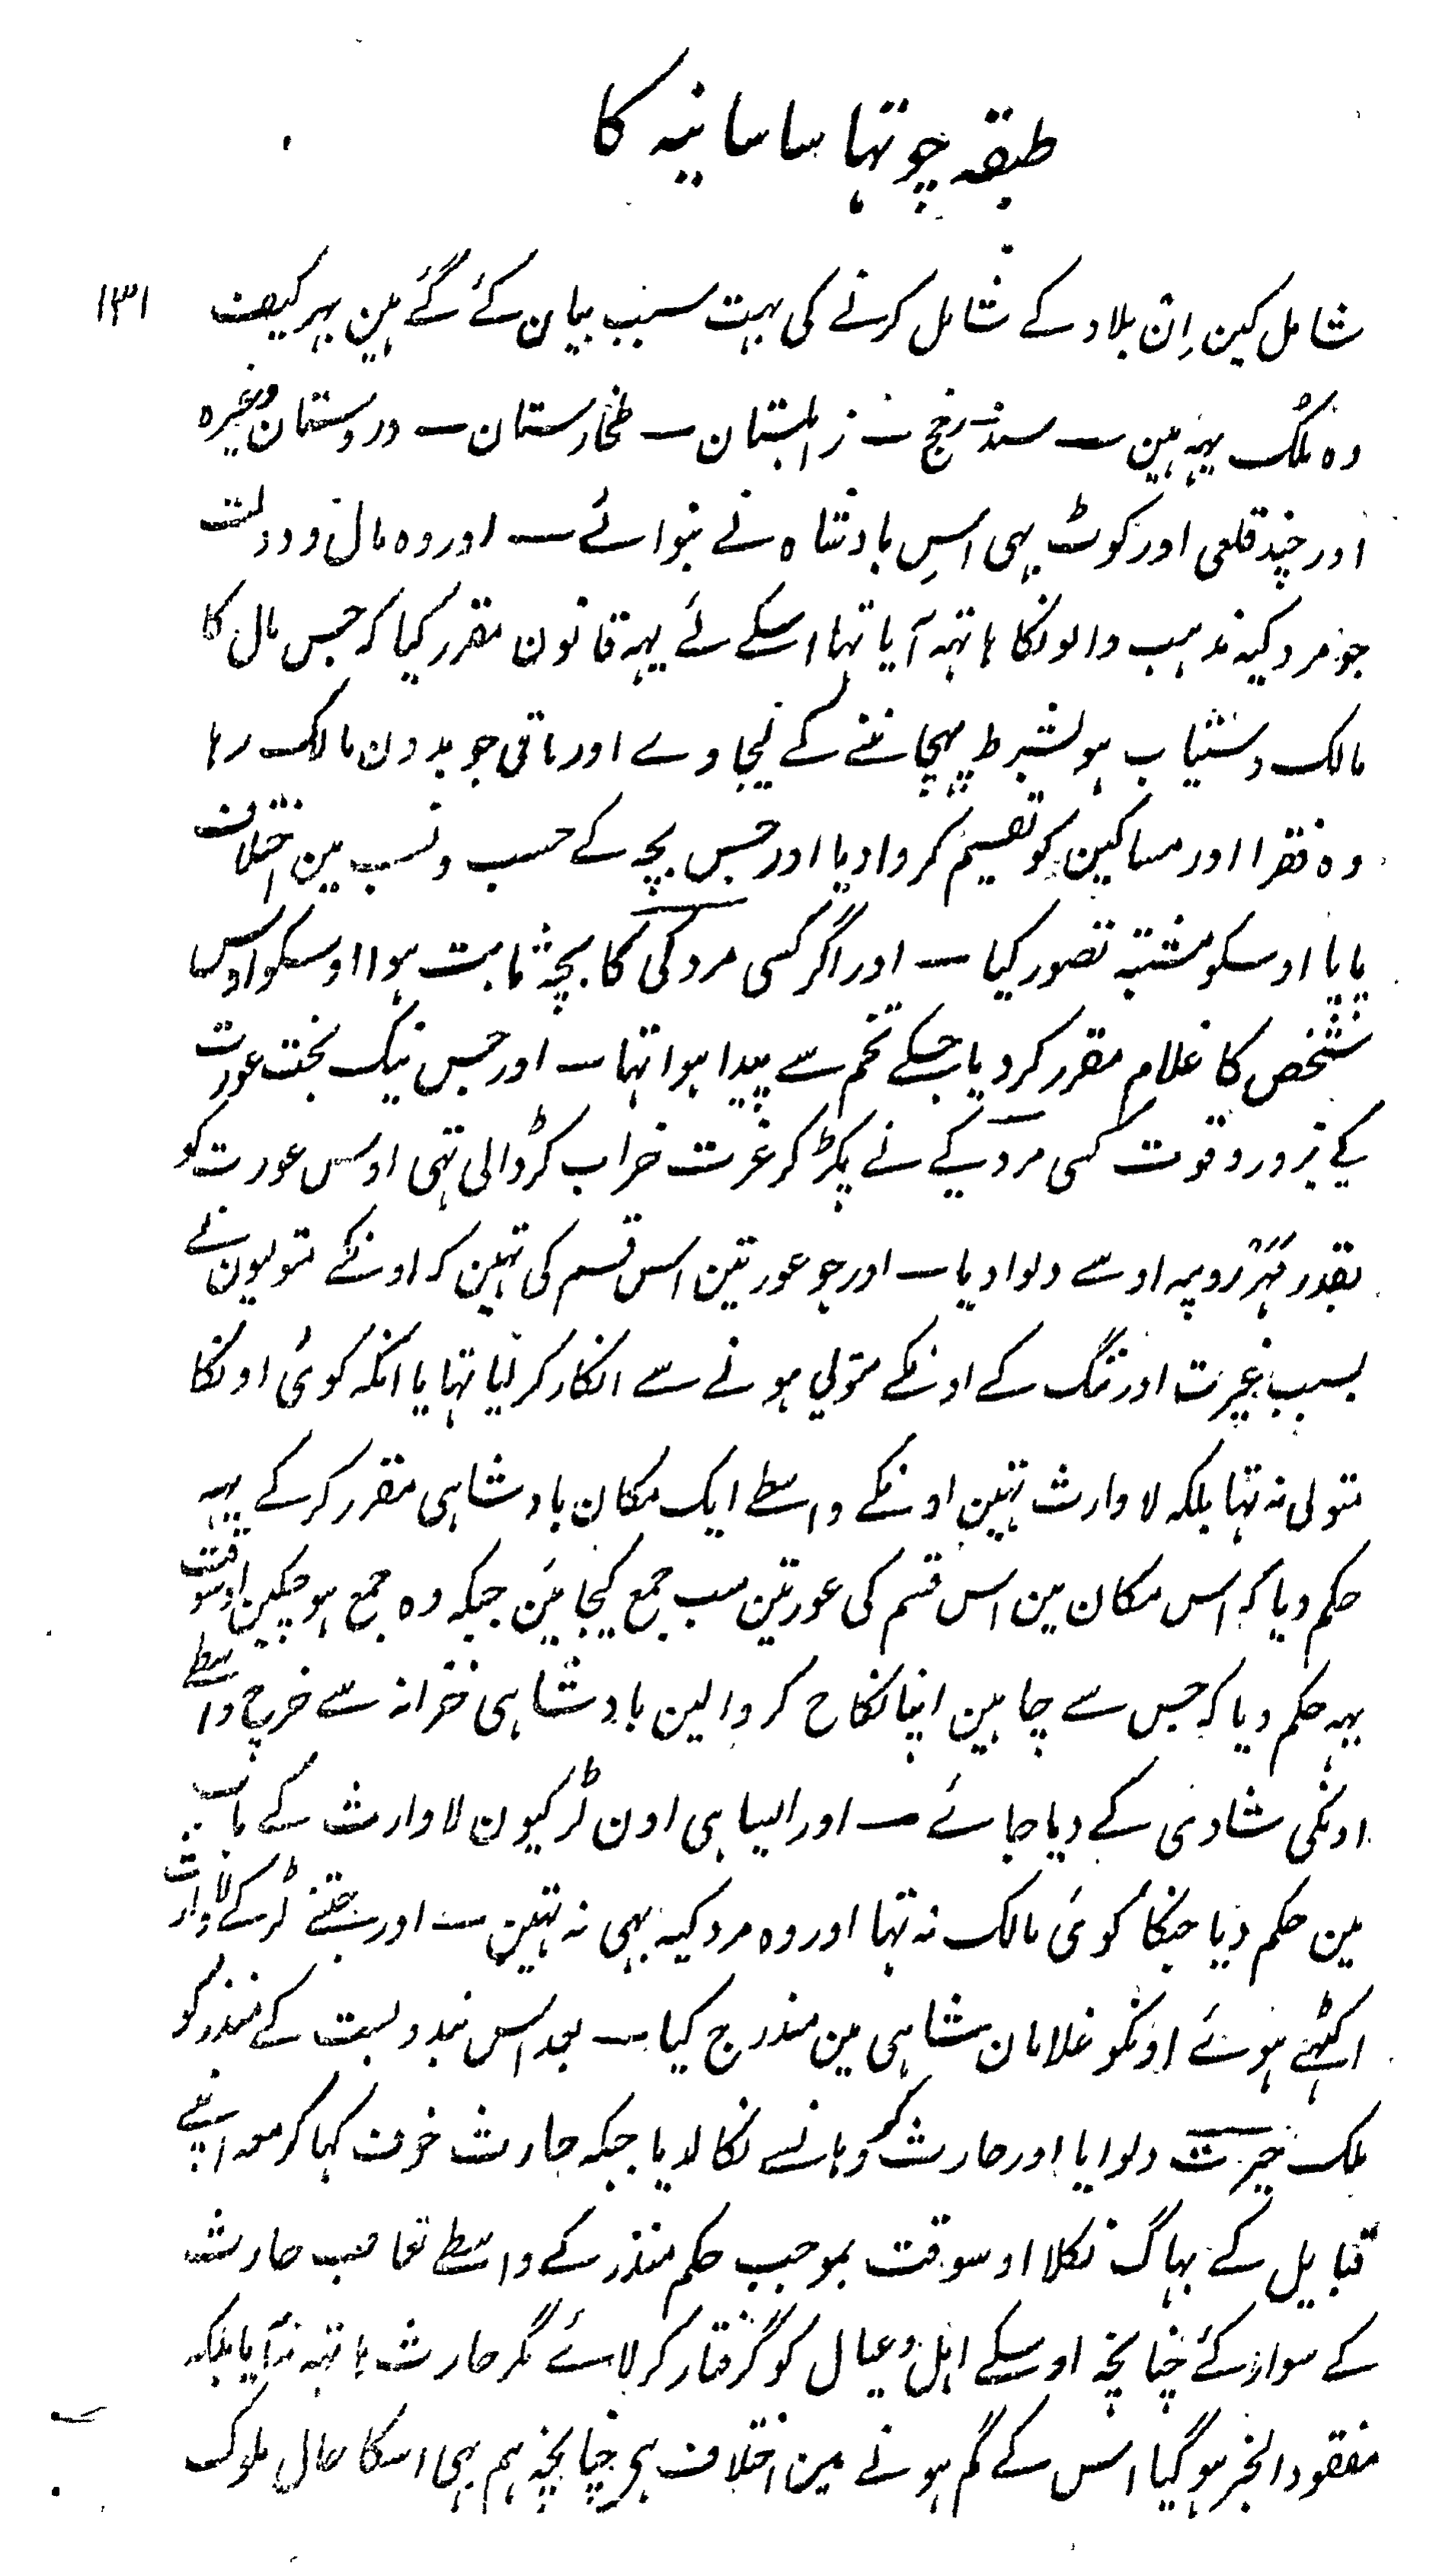 طبقہ چوتہا ساسانیہ کا
۱۳۱
شامل کین اِن بلاد کے شامل کرنے کی بہت سبب بیان کئے گئے ہین بہر کیف
وہ ملک یہہ ہین ـ سند ـ رخج ـ زابلستان ـ طخارستان ـ دروستان وغیرہ
اور چند قلعی اور کوٹ بہی اسِ بادشاہ نے بنوائے ـ اور وہ مال و دولت
جو مردکیہ مذہب والونکا ہاتہہ آیا تہا اسکے لئے یہہ قانون مقرر کیا کہ جس مال کا
مالک دستیاب ہو بشرط پہچاننے کے لیجاوے اور باقی جو بدون مالک رہا
وہ فقرا اور مساکین کو تقسیم کروا دیا اور جس بچہ کے حسب و نسب مین اختلاف
پایا اوسکو مشتبہ تصور کیا ـ اور اگر کسی مردکی کا بچہ ثابت ہوا اوسکو اوس
شخص کا غلام مقرر کر دیا جسکے تخم سے پیدا ہوا تہا ـ اور جس نیک بخت عورت
کے بزور و قوت کسی مردکیے نے پکڑ کر عزت خراب کر ڈالی تہی اوس عورت کو
بقدر مَہَر روپیہ اوسے دلوا دیا ـ اور جو عورتین اس قسم کی تہین کہ اونکے متولیون نے
بسبب غیرت اور ننگ کے اونکے متولی ہونے سے انکار کر لیا تہا یا انکہ کوئی اونکا
متولی نہ تہا بلکہ لا وارث تہین اونکے واسطے ایک مکان بادشاہی مقرر کر کے یہہ
حکم دیا کہ اس مکان مین اس قسم کی عورتین سب جمع کیجائین جبکہ وہ جمع ہو چکین اوسوقت
یہہ حکم دیا کہ جس سے چاہین اپنا نکاح کروالین بادشاہی خزانہ سے خرچ واسطے
اونکی شادی کے دیا جائے ـ اور ایسا ہی اون لڑکیون لاوارث کے باب
مین حکم دیا جنکا کوئی مالک نہ تہا اور وہ مردکیہ بہی نہ تہین ـ اور جتنے لڑکے لاوارث
اکٹہے ہوئے اونکو غلامان شاہی مین مندرج کیا ـ بعد اس بندوبست کے منذر کو
ملک حیرت دلوایا اور حارث کو وہانسے نکالدیا جبکہ حارث خوف کہا کر معہ اپنے
قبایل کے بہاگ نکلا اوسوقت بموجب حکم منذر کے واسطے تعاقب حارث
کے سوار گئے چنانچہ اوسکے اہل و عیال کو گرفتار کر لائے مگر حارث ہاتہہ نہ آیا بلکہ
مفقود الخبر ہو گیا اس کے گم ہونے مین اختلاف ہی چنانچہ ہم بہی اسکا حال ملوک